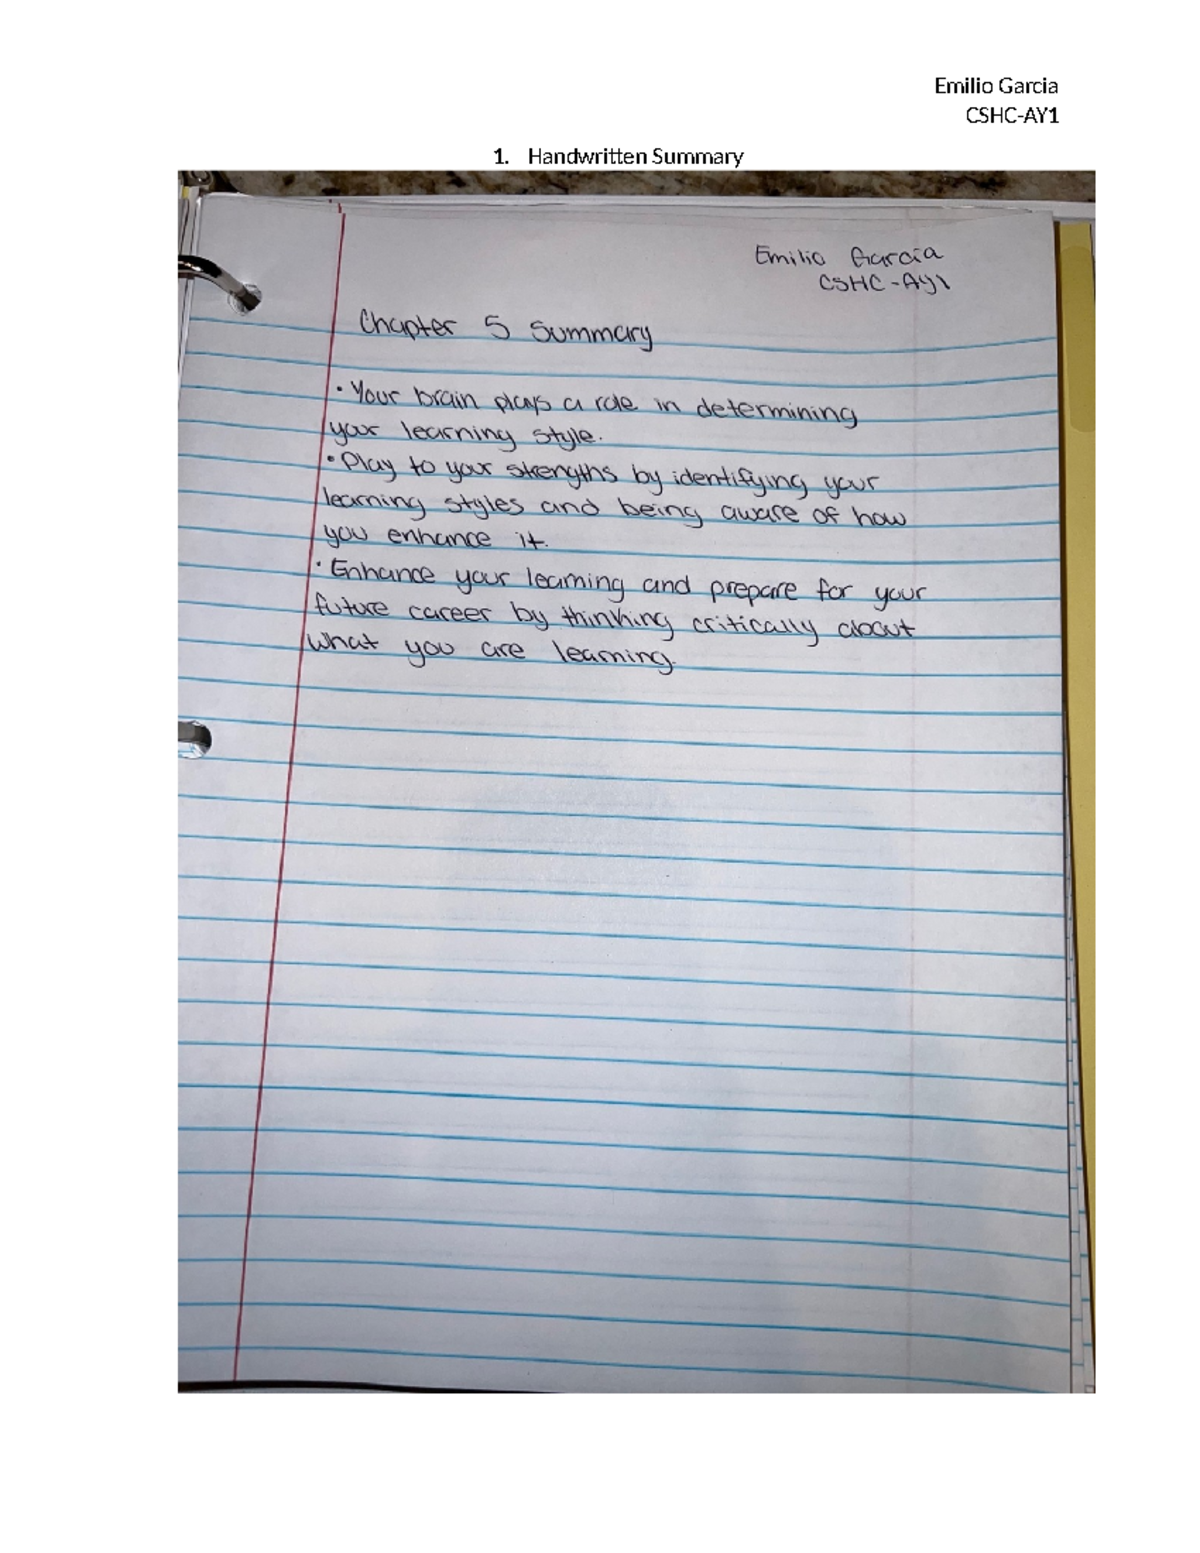 Emilio Garcia
CSHC-AY1
1. Handwritten Summary
Emilio Garcia
CSHC-AY1
Chapter 5 Summary
• Your brain plays a role in determining
your learning style.
• Play to your strengths by identifying your
learning styles and being aware of how
you enhance it.
• Enhance your learning and prepare for your
future career by thinking critically about
what you are learning.